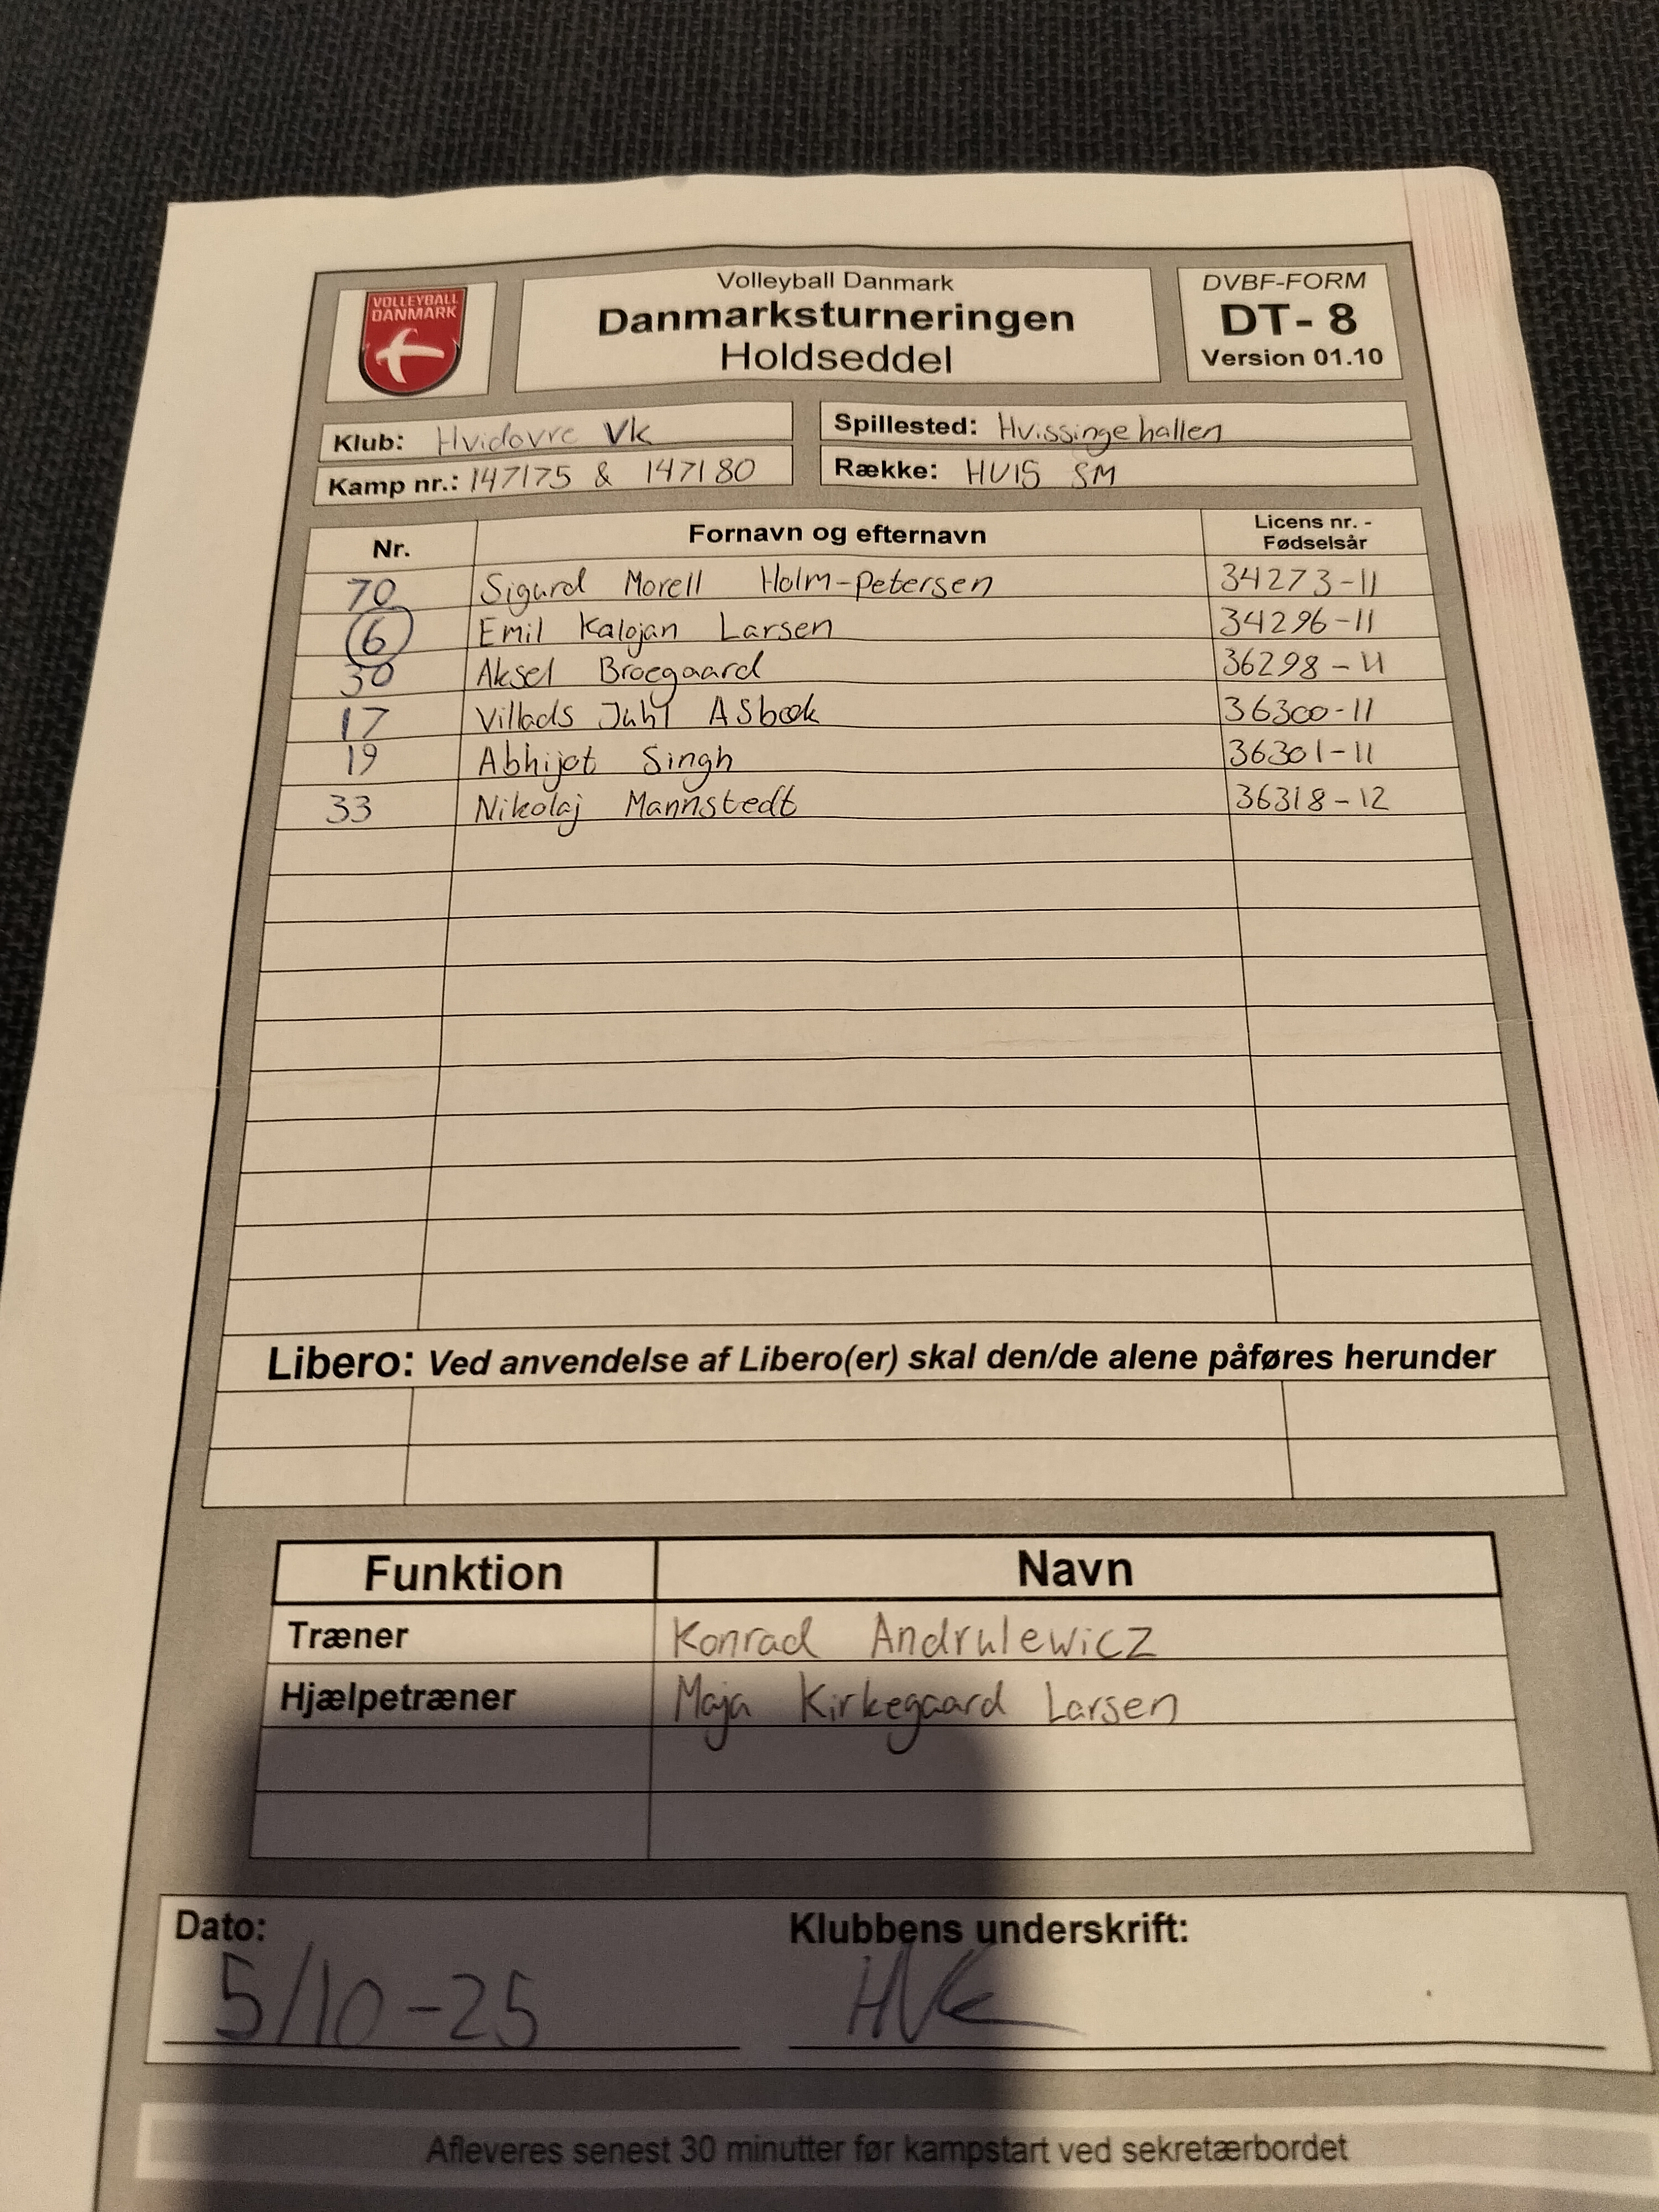 VOLLEYBALL
DANMARK
Volleyball Danmark
Danmarksturneringen
Holdseddel
DVBF-FORM
DT- 8
Version 01.10
Klub: Hvidovre Vk
Spillested: Hvissingehallen
Kamp nr.: 147175 & 147180
Række: HU15 SM
Nr. Fornavn og efternavn Licens nr. - Fødselsår
70 Sigurd Morell Holm-Petersen 34273-11
6 Emil Kalojan Larsen 34296-11
30 Aksel Broegaard 36298-11
17 Villads Juhl ASbæk 36300-11
19 Abhijot Singh 36301-11
33 Nikolaj Mannstedt 36318-12
Libero: Ved anvendelse af Libero(er) skal den/de alene påføres herunder
Funktion Navn
Træner Konrad Andrulewicz
Hjælpetræner Maja Kirkegaard Larsen
Dato: Klubbens underskrift:
5/10-25 HVK
Afleveres senest 30 minutter før kampstart ved sekretærbordet